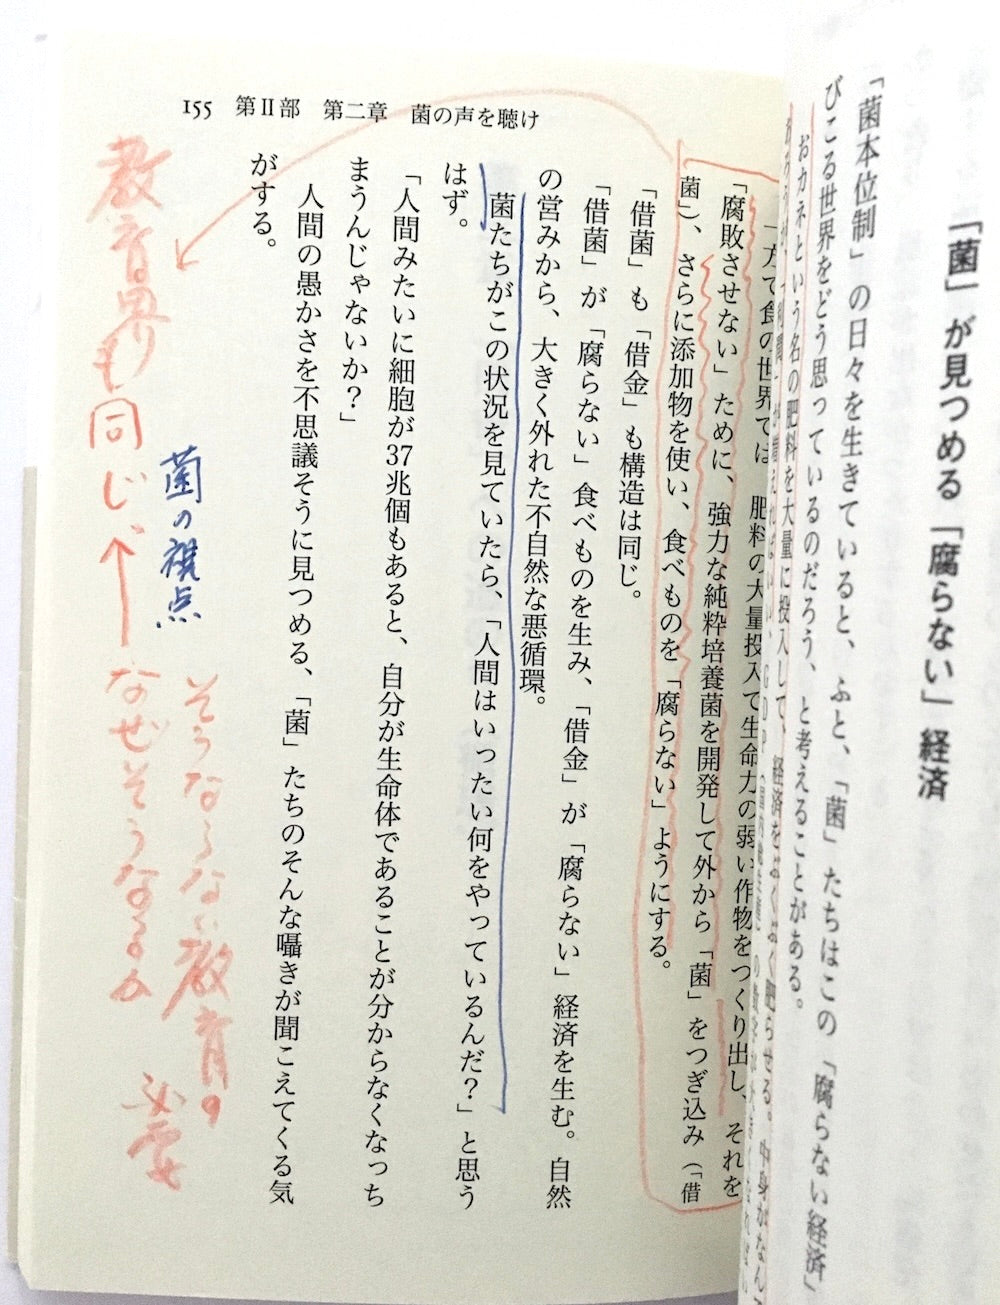 「菌」が見つめる「腐らない」経済
「菌本位制」の日々を生きていると、ふと、「菌」たちはこの「腐らない経済」
びこる世界をどう思っているのだろう、と考えることがある。
おカネという名の肥料を大量に投入して、経済をぶくぶく肥らせる。中身がなんで
一方で食の世界では、肥料の大量投入で生命力の弱い作物をつくり出し、それを
「腐敗させない」ために、強力な純粋培養菌を開発して外から「菌」をつぎ込み（「借
菌」）、さらに添加物を使い、食べものを「腐らない」ようにする。
「借菌」も「借金」も構造は同じ。
「借菌」が「腐らない」食べものを生み、「借金」が「腐らない」経済を生む。自然
の営みから、大きく外れた不自然な悪循環。
菌たちがこの状況を見ていたら、「人間はいったい何をやっているんだ？」と思う
はず。
「人間みたいに細胞が37兆個もあると、自分が生命体であることが分からなくなっち
まうんじゃないか？」
人間の愚かさを不思議そうに見つめる、「菌」たちのそんな囁きが聞こえてくる気
がする。
155 第Ⅱ部 第二章 菌の声を聴け
菌の視点
教育界も同じ、
なぜそうなるか
そうならない教育の
必要